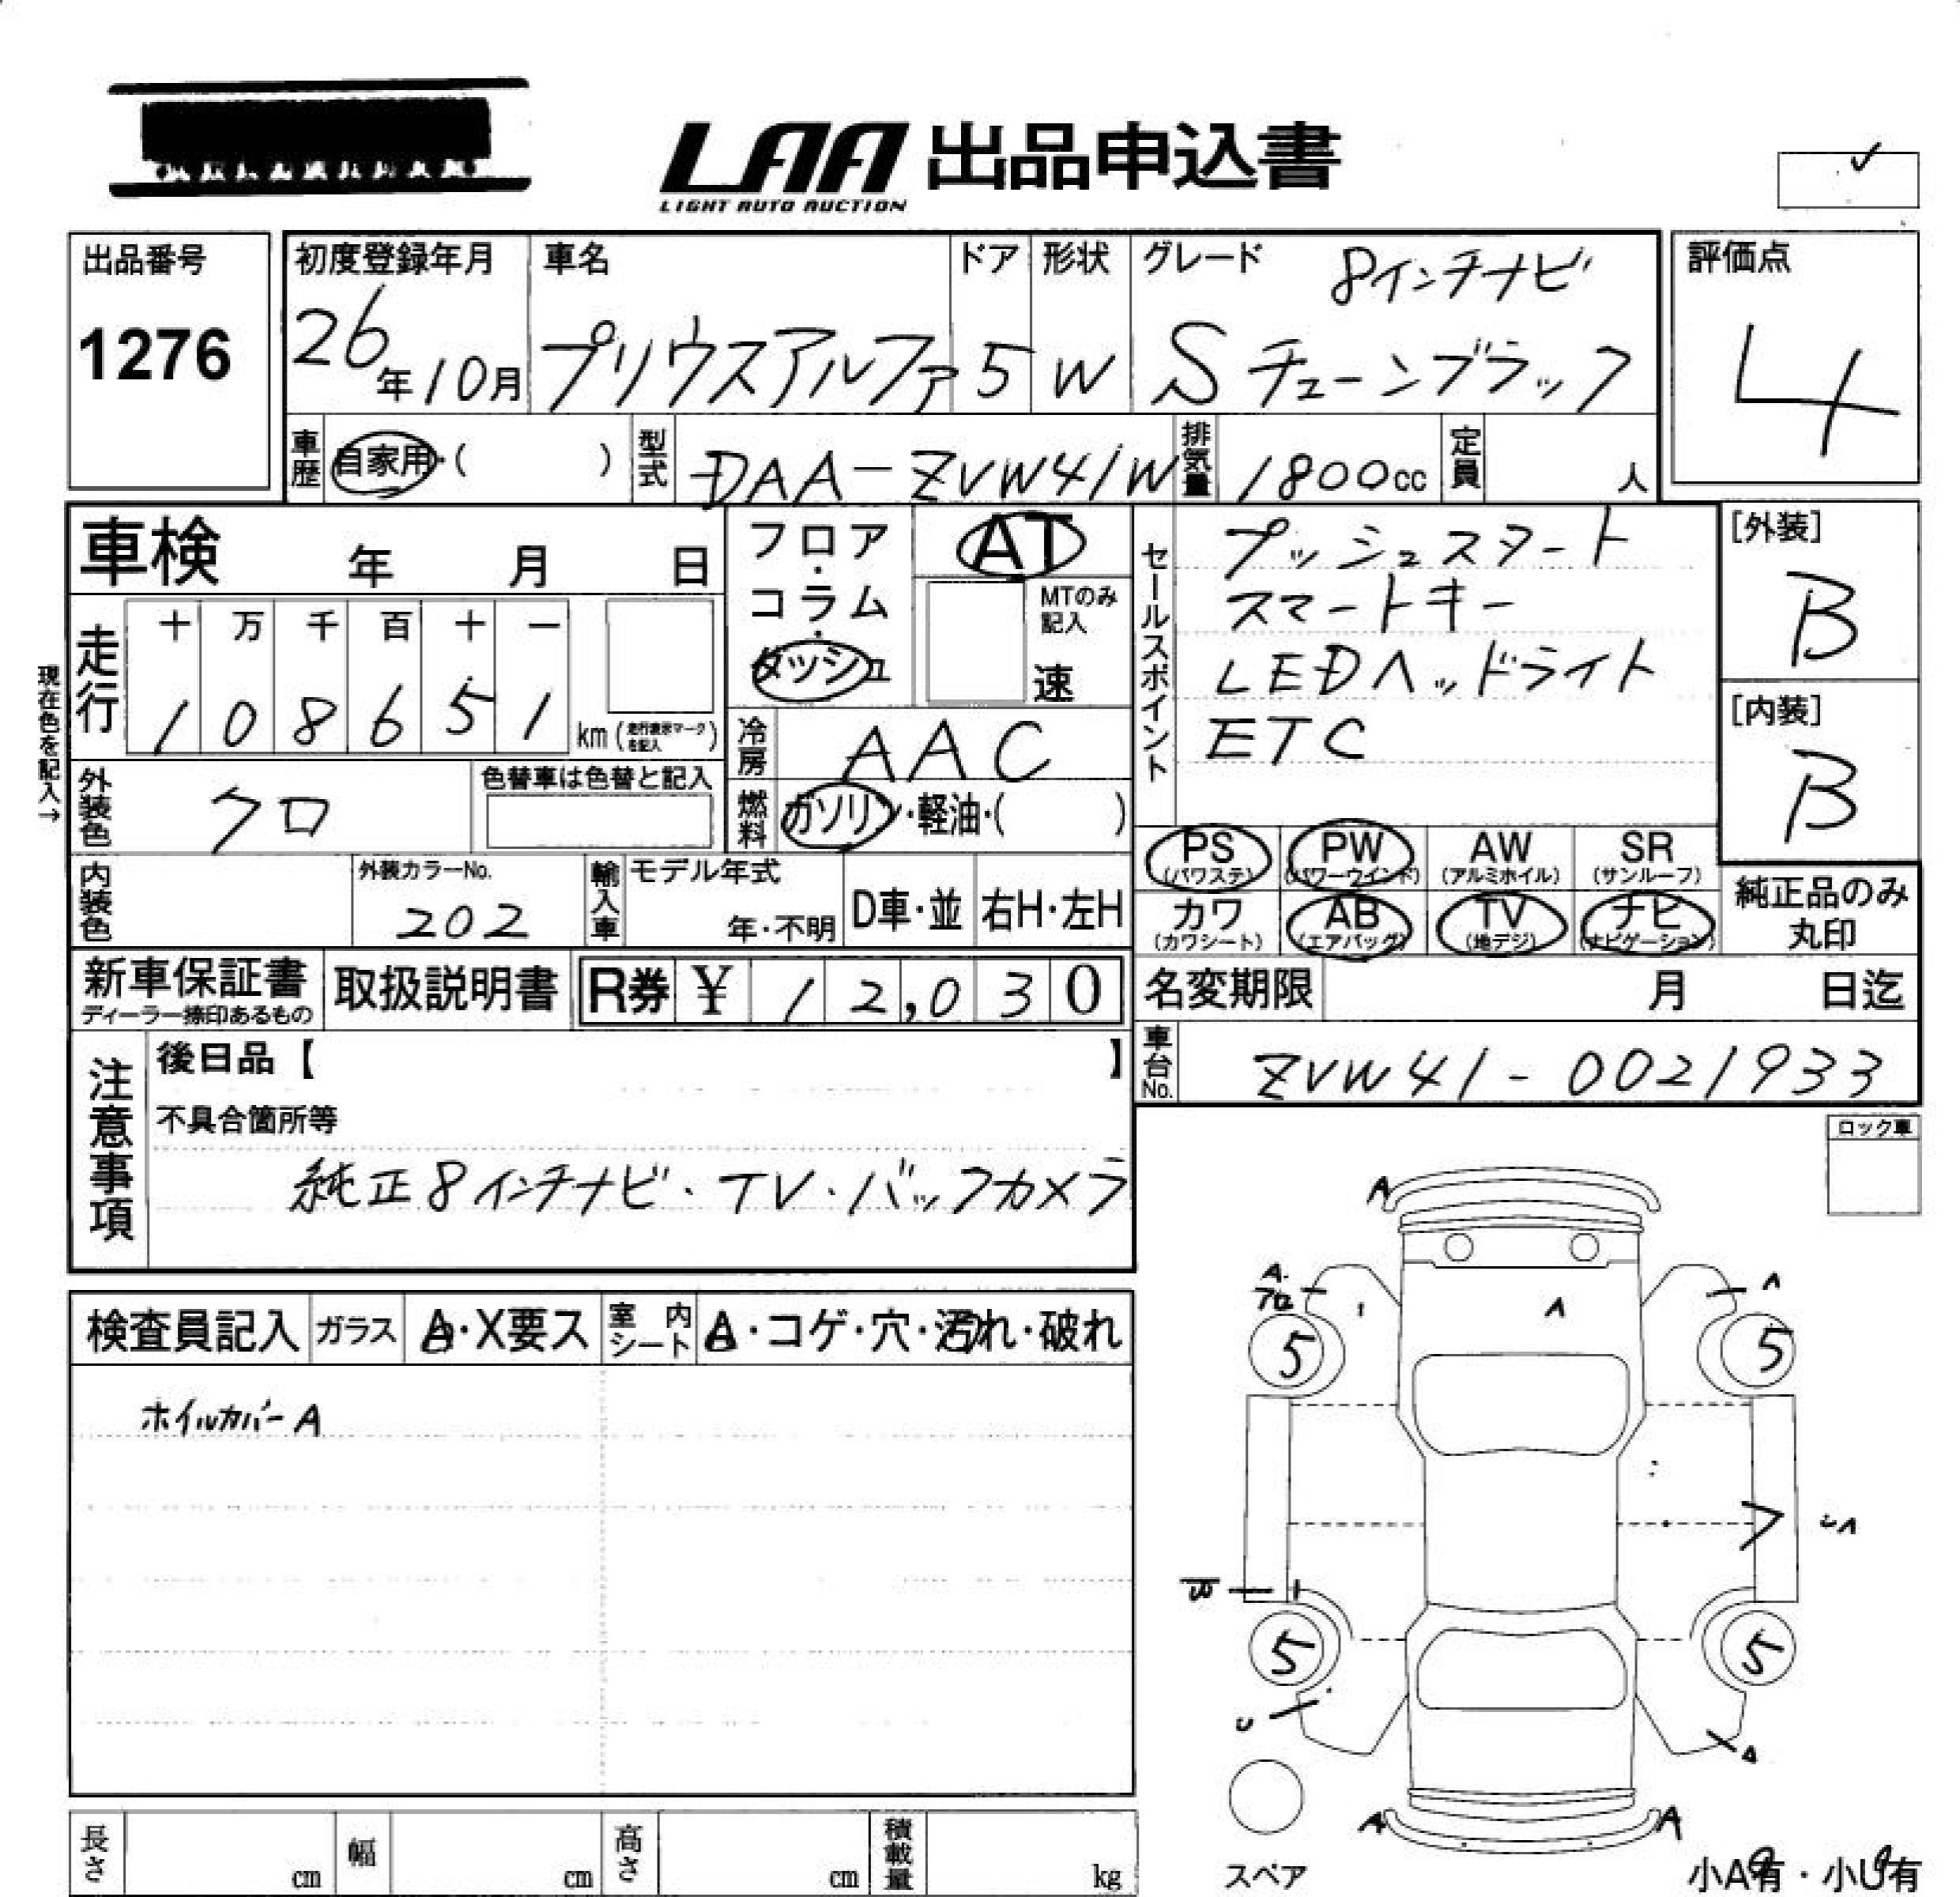 LAA 出品申込書
LIGHT AUTO AUCTION
✓
出品番号
1276
初度登録年月
26年10月
車名
プリウスアルファ
ドア
5
形状
W
グレード
8インチナビ
Sチューンブラック
評価点
4
車歴 自家用・( )
型式 DAA-ZVW41W
排気量 1800cc
定員 人
車検 年 月 日
フロア・コラム・ダッシュ
AT
MTのみ記入
速
セールスポイント
プッシュスタート
スマートキー
LEDヘッドライト
ETC
[外装]
B
[内装]
B
現在色を記入→
走行
十 万 千 百 十 一
1 0 8 6 5 1 km (走行表示マークを記入)
冷房 AAC
燃料 ガソリン・軽油・( )
外装色 クロ
色替車は色替と記入
内装色
外装カラーNo.
202
輸入車
モデル年式
年・不明
D車・並
右H・左H
PS (パワステ)
PW (パワーウインド)
AW (アルミホイル)
SR (サンルーフ)
カワ (カワシート)
AB (エアバッグ)
TV (地デジ)
ナビ (ナビゲーション)
純正品のみ丸印
新車保証書
ディーラー捺印あるもの
取扱説明書
R券 ¥ 12,030
名変期限 月 日迄
車台No. ZVW41-0021933
注意事項
後日品【 】
不具合箇所等
純正8インチナビ・TV・バックカメラ
ロック車
検査員記入
ガラス
A・X要ス
室内シート
A・コゲ・穴・汚れ・破れ
ホイルカバーA
A
A
A
A
A
5
5
U
5
5
A
A
A
スペア
小A有・小U有
長さ cm
幅 cm
高さ cm
積載量 kg